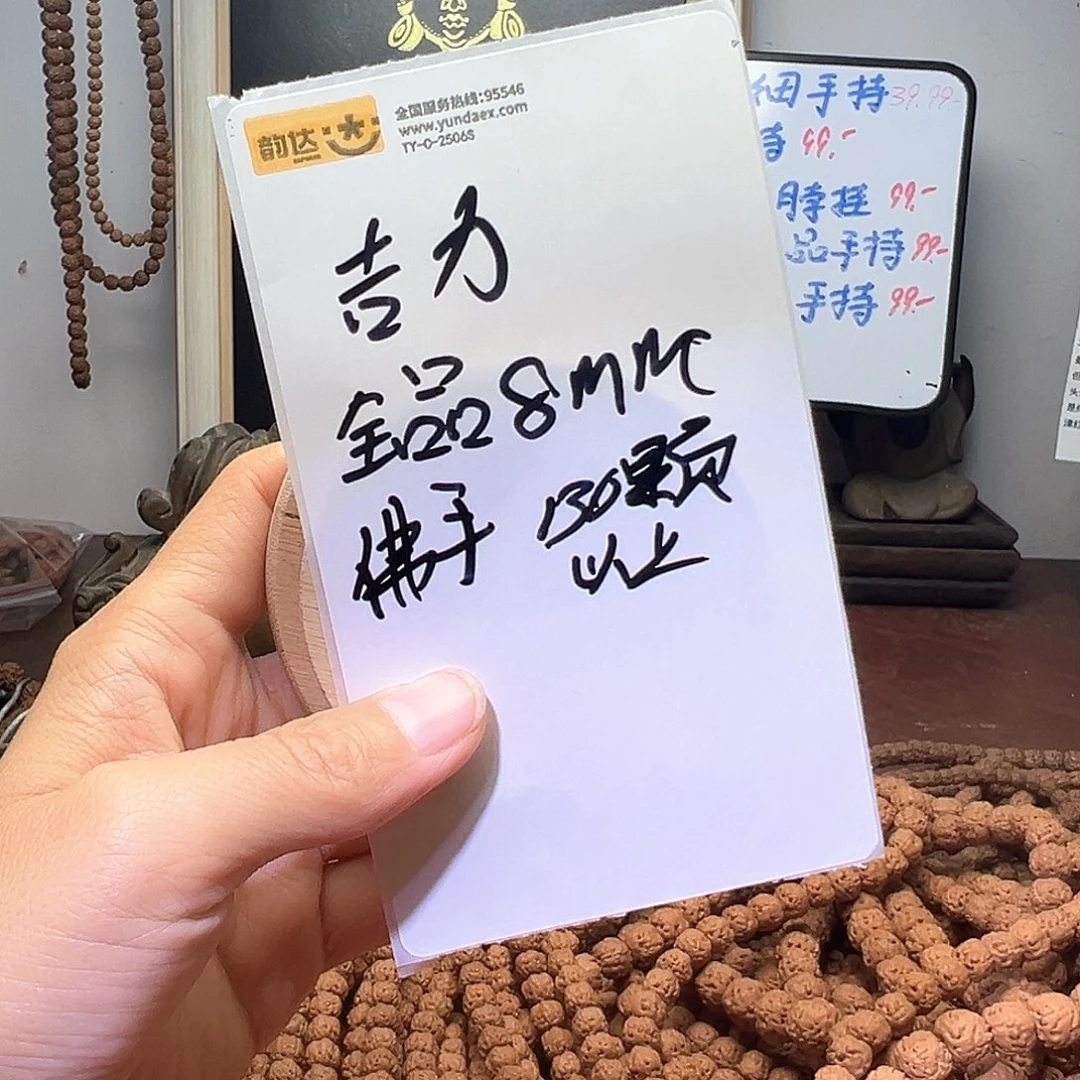 韵达
全国服务热线:95546
www.yundaex.com
TY-0-2506S
吉力
全品8MM
佛手 130颗
以上
细手持39.99-
持 99.-
脖挂 99.-
品手持 99-
手持 99-